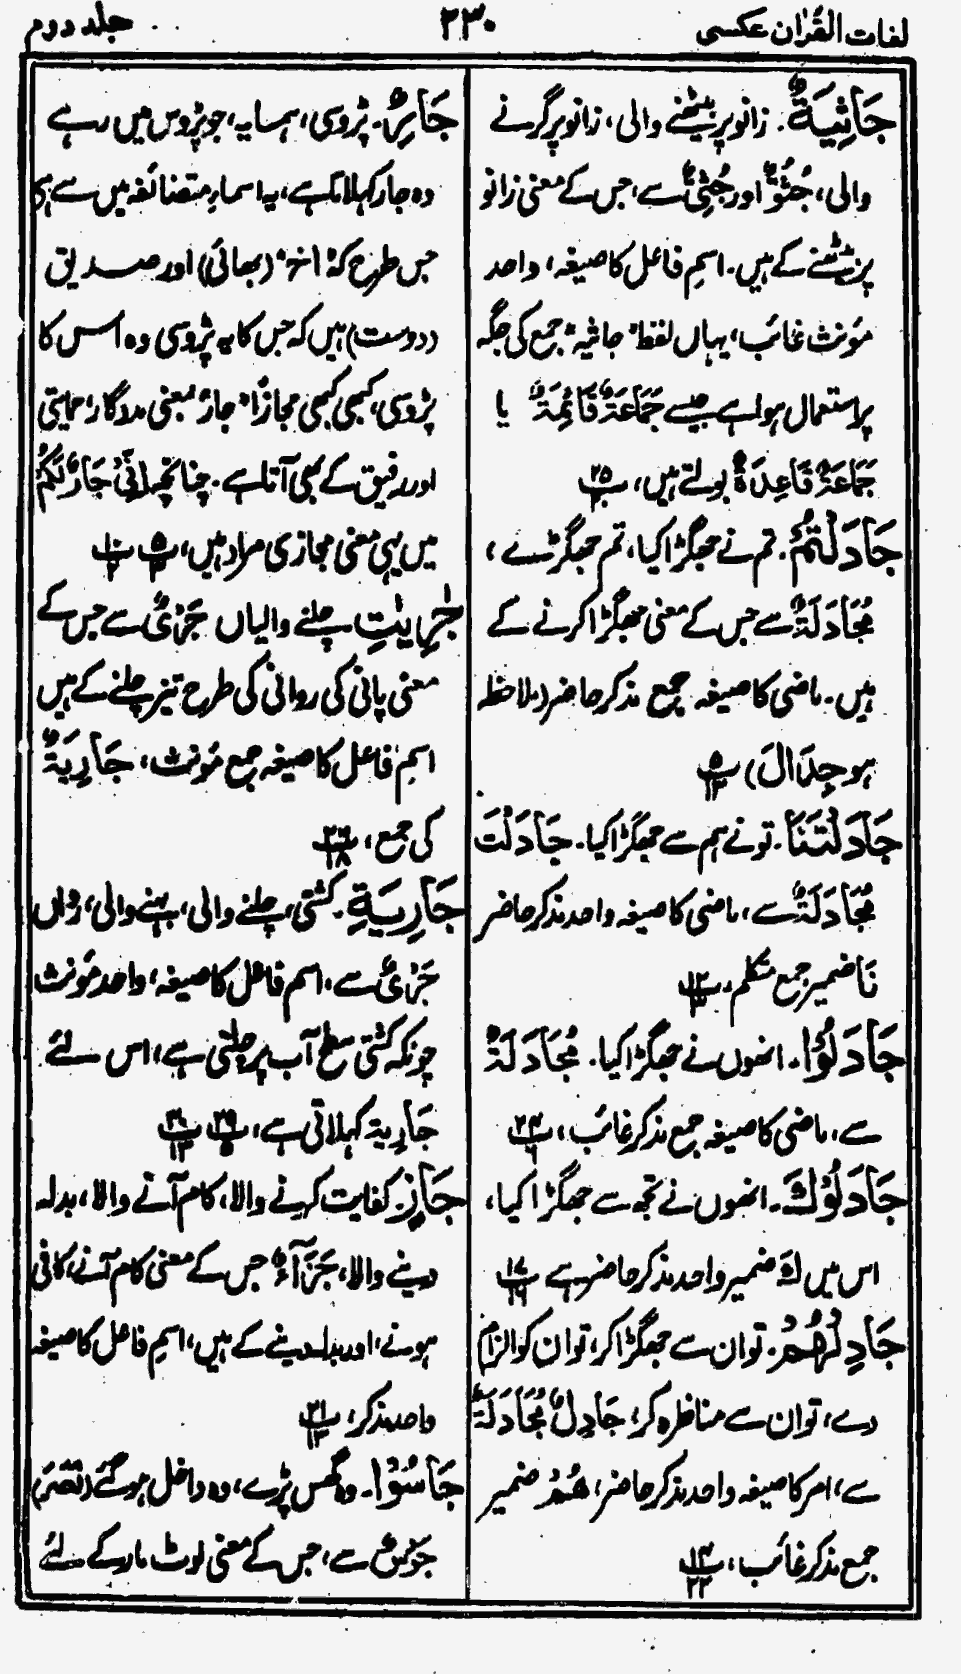 لغات القرآن عکسی
۲۳۰
جلد دوم
جَاثِیَۃٌ. زانو پر بیٹھنے والی، زانو پر گرنے
والی، جُثُوٌّ اور جُثِیٌّ سے، جس کے معنی زانو
پر بیٹھنے کے ہیں. اسم فاعل کا صیغہ، واحد
مؤنث غائب، یہاں لفظ "جاثیہ" جمع کی جگہ
پر استعمال ہوا ہے جیسے جَمَاعَۃٌ قَائِمَۃٌ یا
جَمَاعَۃٌ قَاعِدَۃٌ بولتے ہیں، پ ۲۵
جَادَلْتُمْ. تم نے جھگڑا کیا، تم جھگڑے،
مُجَادَلَۃٌ سے جس کے معنی جھگڑا کرنے کے
ہیں. ماضی کا صیغہ جمع مذکر حاضر (ملاحظہ
ہو جِدَالَ) پ ۵/۱۳
جَادَلْتَنَا. تو نے ہم سے جھگڑا کیا. جَادَلْتَ
مُجَادَلَۃٌ سے، ماضی کا صیغہ واحد مذکر حاضر
نَا ضمیر جمع متکلم. پ ۱۲
جَادَلُوْا. انھوں نے جھگڑا کیا. مُجَادَلَۃٌ
سے، ماضی کا صیغہ جمع مذکر غائب، پ ۲۴/۶
جَادَلُوْكَ. انھوں نے تجھ سے جھگڑا کیا،
اس میں كَ ضمیر واحد مذکر حاضر ہے پ ۱۷/۱۶
جَادِلْهُمْ. تو ان سے جھگڑا کر، تو ان کو الزام
دے، تو ان سے مناظرہ کر، جَادِلْ مُجَادَلَۃٌ
سے، امر کا صیغہ واحد مذکر حاضر، هُمْ ضمیر
جمع مذکر غائب، پ ۱۴/۲۲
جَارٌ. پڑوسی، ہمسایہ، جو پڑوس میں رہے
وہ جار کہلاتا ہے، یہ اسماء متضائفہ میں سے ہی
جس طرح کہ "اخ" (بھائی) اور صدیق
(دوست) ہیں کہ جس کا یہ پڑوسی وہ اس کا
پڑوسی، کبھی کبھی مجازاً "جار" بمعنی مددگار، حمایتی
اور رفیق کے بھی آتا ہے. چنانچہ اِنِّیْ جَارٌ لَّكُمْ
میں یہی معنی مجازی مراد ہیں، پ ۵ پ ۱۰
جٰرِیٰتِ چلنے والیاں جَرْیٌ سے جس کے
معنی پانی کی روانی کی طرح تیز چلنے کے ہیں
اسم فاعل کا صیغہ جمع مؤنث، جَارِیَۃٌ
کی جمع، پ ۲۶/۱۸
جَارِیَۃٍ. کشتی، چلنے والی، بہنے والی، رواں
جَرْیٌ سے، اسم فاعل کا صیغہ، واحد مؤنث
چونکہ کشتی سطح آب پر چلتی ہے، اس لئے
جَارِیۃ کہلاتی ہے، پ ۲۹/۵ پ ۳۰/۱۳
جَازٍ. کفایت کرنے والا، کام آنے والا، بدلہ
دینے والا، جَزَآءٌ جس کے معنی کام آنے، کافی
ہونے، اور بدلہ دینے کے ہیں، اسم فاعل کا صیغہ
واحد مذکر، پ ۲۱/۱۳
جَاسُوْا. وہ گھس پڑے، وہ داخل ہو گئے (نَصَرَ)
جَوْسٌ سے، جس کے معنی لوٹ مار کے لئے